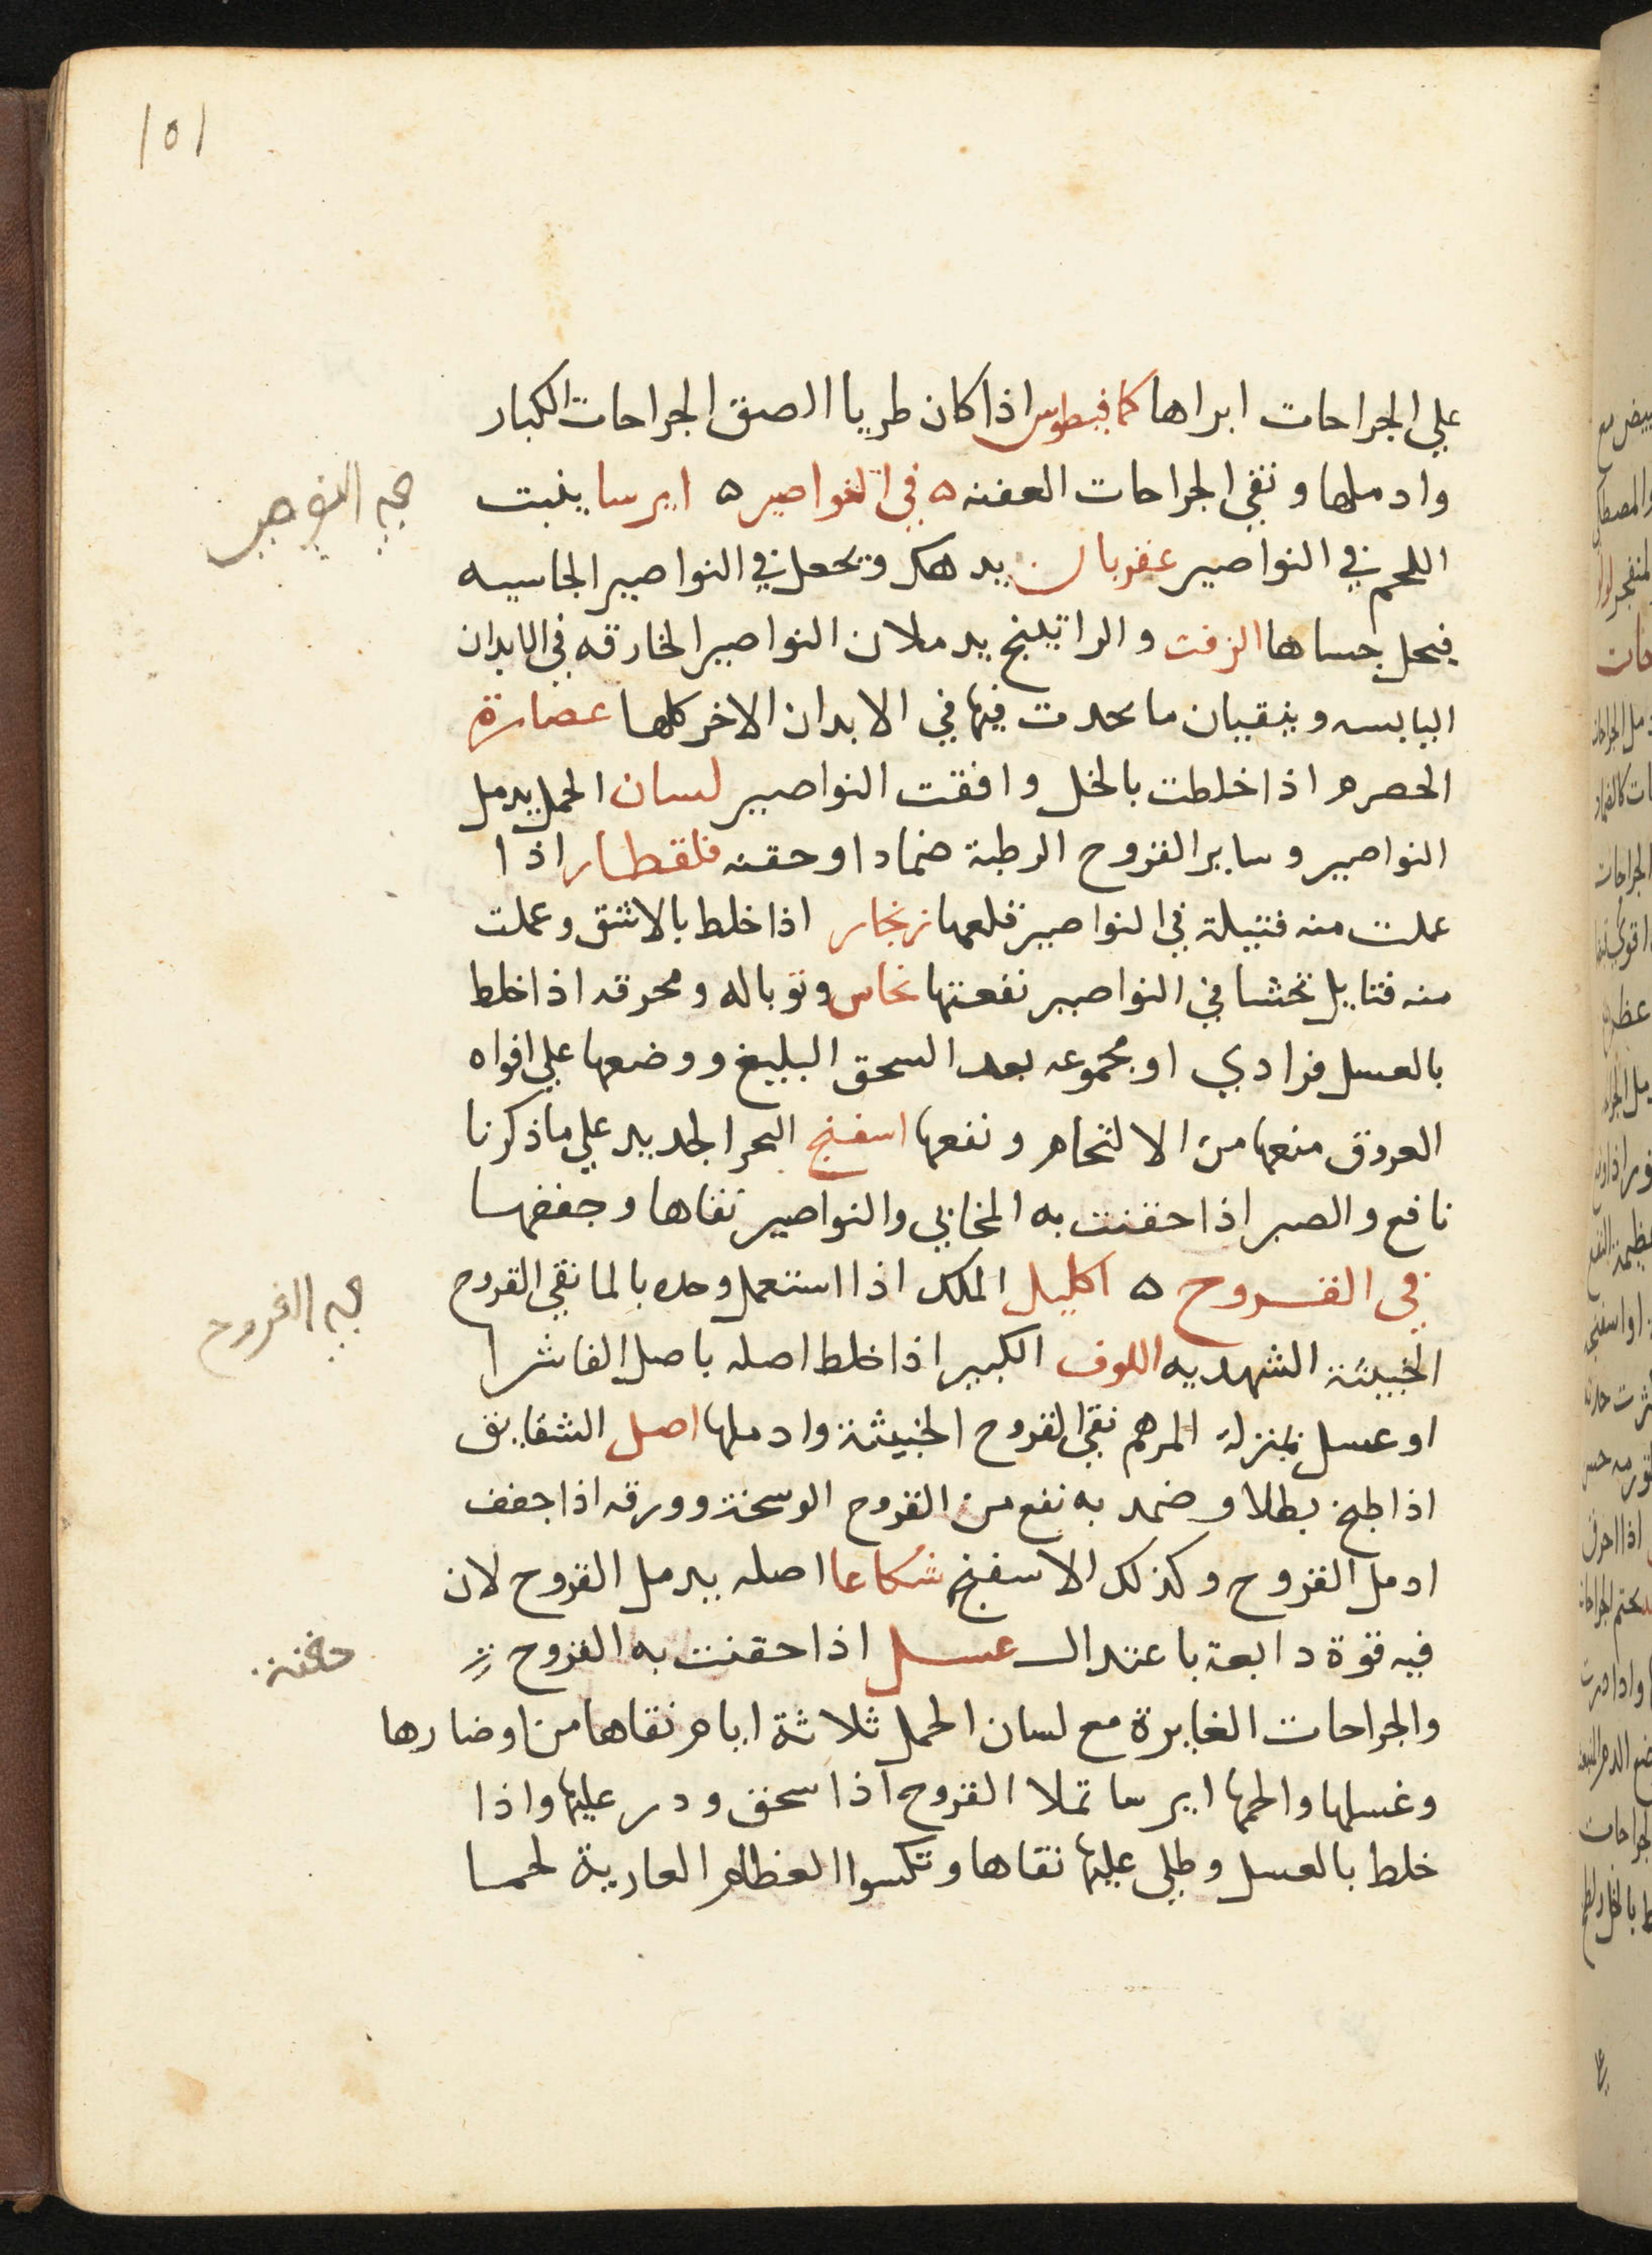 101
علي الجراحات ابراها كمافيطوس اذا كان طريا الصق الجراحات الكبار
وادملها ونقي الجراحات العفنه ه في النواصير ه ايرسا ينبت
اللحم في النواصير عفربان يدهك ويجعل في النواصير الجاسيه
فيحل جساها الزفت والراتينج يدملان النواصير الخارقه في الابدان
اليابسه وينقيان ما يحدث فيها في الابدان الاخر كلها عصارة
الحصرم اذا خلطت بالخل وافقت النواصير لسان الحمل يدمل
النواصير وساير القروح الرطبة ضمادا وحقنه قلقطار اذا
عملت منه فتيلة في النواصير قلعها زنجار اذا خلط بالاشق وعملت
منه فتايل تحشا في النواصير نفعتها نحاس وتوباله ومحرقه اذا خلط
بالعسل فرادي او مجموعه بعد السحق البليغ ووضعها علي افواه
العروق منعها من الالتحام ونفعها اسفنج البحر الجديد علي ما ذكرنا
نافع والصبر اذا حقنت به المخابي والنواصير نقاها وجففها
في القروح ه اكليل الملك اذا استعمل وحده بالما نقي القروح
الخبيثة الشهديه اللوف الكبير اذا خلط اصله باصل الفاشرا
او عسل بمنزلة المرهم نقي القروح الخبيثة وادملها اصل الشقايق
اذا طبخ بطلا وضمد به نفع من القروح الوسخة وورقه اذا جفف
ادمل القروح وكذلك الاسفنج شكاعا اصله يدمل القروح لان
فيه قوة دابعة باعتدال عسل اذا حقنت به القروح
والجراحات الغايرة مع لسان الحمل ثلاثة ايام نقاها من اوضارها
وغسلها والحمها ايرسا تملا القروح اذا سحق ودر عليها واذا
خلط بالعسل وطلي عليها نقاها وتكسوا العظام العارية لحما
القروح
حقنة